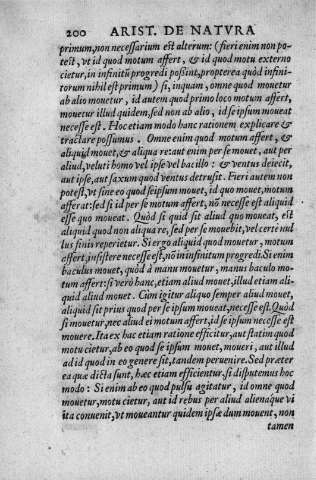 200 ARIST. DE NATVRA
primum, non necessarium est alterum: (fieri enim non po-
test, vt id quod motum affert, & id quod motu externo
cietur, in infinitũ progredi possint, propterea quòd infini-
torum nihil est primum) si, inquam, omne quod mouetur
ab alio mouetur, id autem quod primo loco motum affert,
mouetur illud quidem, sed non ab alio, id se ipsum moueat
necesse est. Hoc etiam modo hanc rationem explicare &
tractare possumus. Omne enim quod motum affert, &
aliquid mouet, & aliqua re: aut enim per se mouet, aut per
aliud, veluti homo vel ipse vel bacillo: & ventus deiecit,
aut ipse, aut saxum quod ventus detrusit. Fieri autem non
potest, vt sine eo quod seipsum mouet, id quo mouet, motum
afferat: sed si id per se motum affert, nõ necesse est aliquid
esse quo moueat. Quòd si quid sit aliud quo moueat, est
aliquid quod non aliqua re, sed per se mouebit, vel certè nul
lus finis reperietur. Si ergo aliquid quod mouetur, motum
affert, insistere necesse est, nõ in infinitum progredi. Si enim
baculus mouet, quòd à manu mouetur, manus baculo mo-
tum affert: si verò hanc, etiam aliud mouet, illud etiam ali-
quid aliud mouet. Cùm igitur aliquo semper aliud mouet,
aliquid sit prius quod per se ipsum moueat, necesse est. Quòd
si mouetur, nec aliud ei motum affert, id se ipsum necesse est
mouere. Ita ex hac etiam ratione efficitur, aut statim quod
motu cietur, ab eo quod se ipsum mouet, moueri, aut illud
ad id quod in eo genere sit, tandem peruenire. Sed præter
ea quæ dicta sunt, hæc etiam efficientur, si disputemus hoc
modo: Si enim ab eo quod pulsu agitatur, id omne quod
mouetur, motu cietur, aut id rebus per aliud alienaque vi
ita conuenit, vt moueantur quidem ipsæ dum mouent, non
tamen